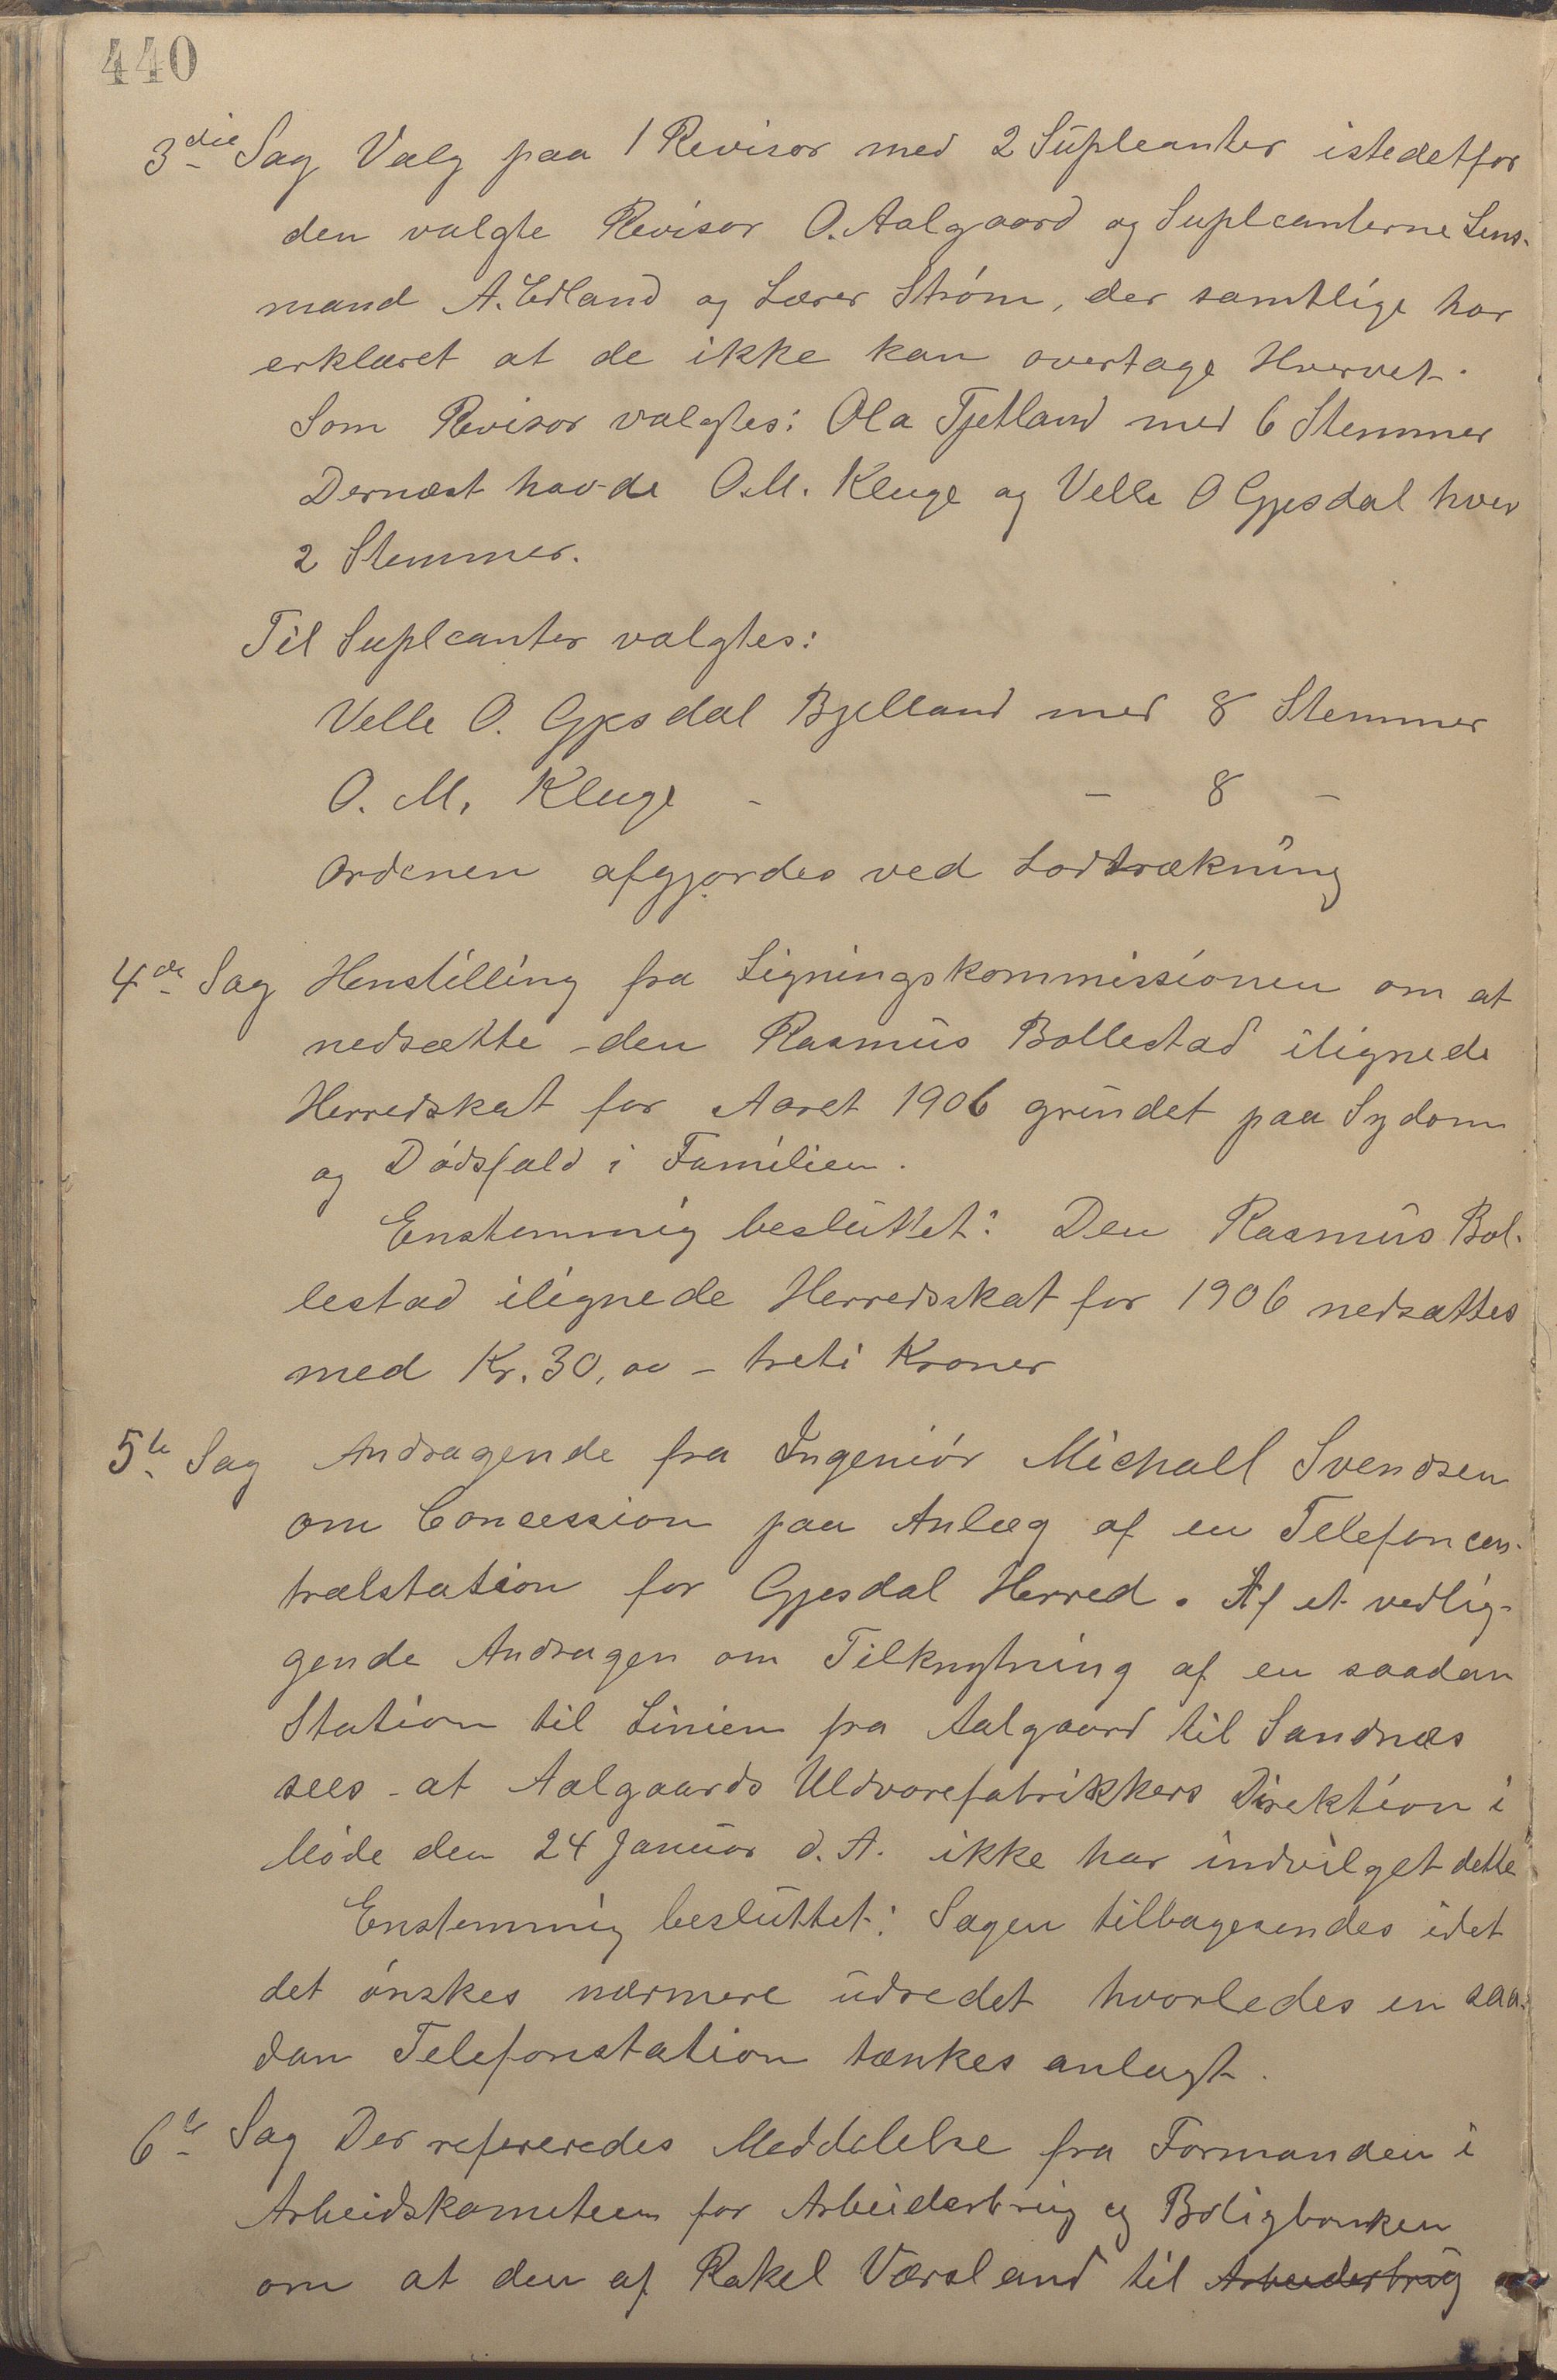 440
3die Sag Valg paa 1 Revisor med 2 Supleanter istedetfor
den valgte Revisor O. Aalgaard og Supleanterne Lens-
mand A. Edland og Lærer Strøm, der samtlige har
erklæret at de ikke kan overtage Hvervet.
Som Revisor valgtes: Ola Tjetland med 6 Stemmer
Dernæst havde O.M. Kluge og Velle O Gjesdal hver
2 Stemmer.
Til Supleanter valgtes:
Velle O. Gjesdal Bjelland med 8 Stemmer
O. M. Kluge - - 8 -
Ordenen afgjordes ved Lodtrækning
4de Sag Henstilling fra Ligningskommissionen om at
nedsætte den Rasmus Bollestad ilignede
Herredskat for Aaret 1906 grundet paa Sydom
og Dødsfald i Familien.
Enstemmig besluttet: Den Rasmus Bol-
lestad ilignede Herredsskat for 1906 nedsættes
med Kr. 30,00 - treti Kroner
5te Sag Andragende fra Ingeniør Michall Svendsen
om Concession paa Anlæg af en Telefoncen-
tralstation for Gjesdal Herred. Af et vedlig-
gende Andragen om Tilknytning af en saadan
Station til Linien fra Aalgaard til Sandnæs
sees at Aalgaards Uldvarefabrikkers Direktion i
Møde den 24 Januar d. A. ikke har indvilget dette
Enstemmig besluttet: Sagen tilbagesendes idet
det ønskes nærmere udredet hvorledes en saa-
dan Telefonstation tænkes anlagt.
6te Sag Der refereredes Meddelelse fra Formanden i
Arbeidskomiteen for Arbeiderbrug og Boligbanken
om at den af Rakel Værsland til Arbeiderbrug